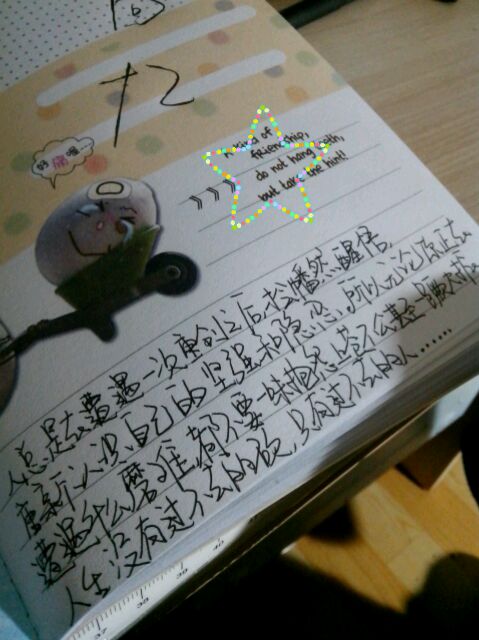 好痛哦
A kind of
friendship,
do not hang with,
but take the hint!
人总是去遭遇一次重创以后才幡然醒悟,
重新认识自己的坚强和隐忍,所以无论你正在
遭遇什么磨难,都不要一味抱怨
人生没有过不去的坎,只有过不去的人……